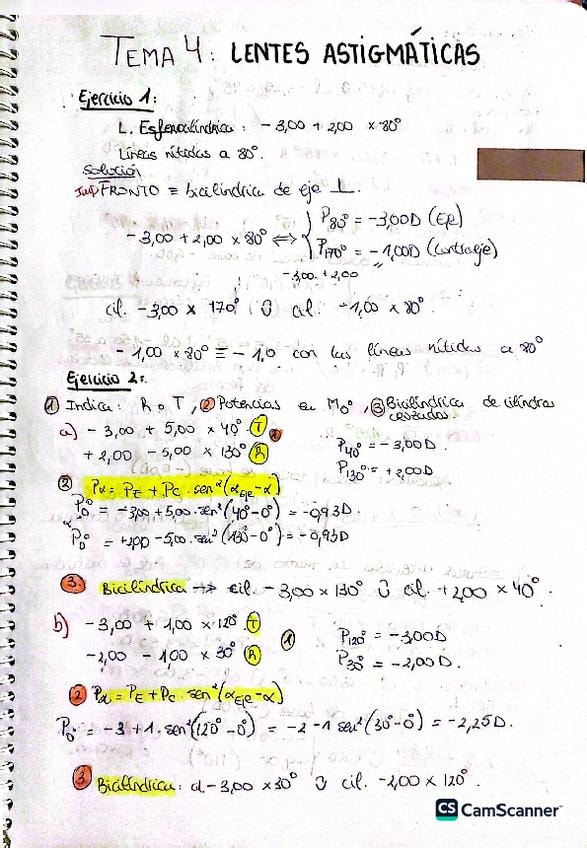 TEMA 4: LENTES ASTIGMÁTICAS
Ejercicio 1:
L. Esferocilíndrica: -3,00 + 2,00 x 80°
Líneas nítidas a 80°.
Solución
FRONTO = bicilíndrica de eje ⊥.
-3,00 + 2,00 x 80° ⟺ { P80° = -3,00D (Eje)
P170° = -1,00D (contraeje)
-3,00 + 2,00
cil. -3,00 x 170° Ʊ cil. -1,00 x 80°
-1,00 x 80° ≡ -1,0 con las líneas nítidas a 80°
Ejercicio 2:
① Indica: R o T, ② Potencias en M0°, ③ Bicilíndrica de cilindros cruzados
a) -3,00 + 5,00 x 40° Ⓣ ①
+2,00 - 5,00 x 130° Ⓡ
P40° = -3,00D.
P130° = +2,00D
② Pα = PE + PC · sen²(αEje - α)
P0° = -3,00 + 5,00 · sen²(40° - 0°) = -0,93D.
P0° = +2,00 - 5,00 · sen²(130° - 0°) = -0,93D
3. Bicilíndrica → cil. -3,00 x 130° Ʊ cil. +2,00 x 40°.
b) -3,00 + 1,00 x 120° Ⓣ ①
-2,00 - 1,00 x 30° Ⓡ
P120° = -3,00D
P30° = -2,00D.
② Pα = PE + PC · sen²(αEje - α)
P0° = -3 + 1 · sen²(120° - 0°) = -2 - 1 sen²(30° - 0°) = -2,25D.
③ Bicilíndrica: cil. -3,00 x 30° Ʊ cil. -2,00 x 120°.
CS CamScanner